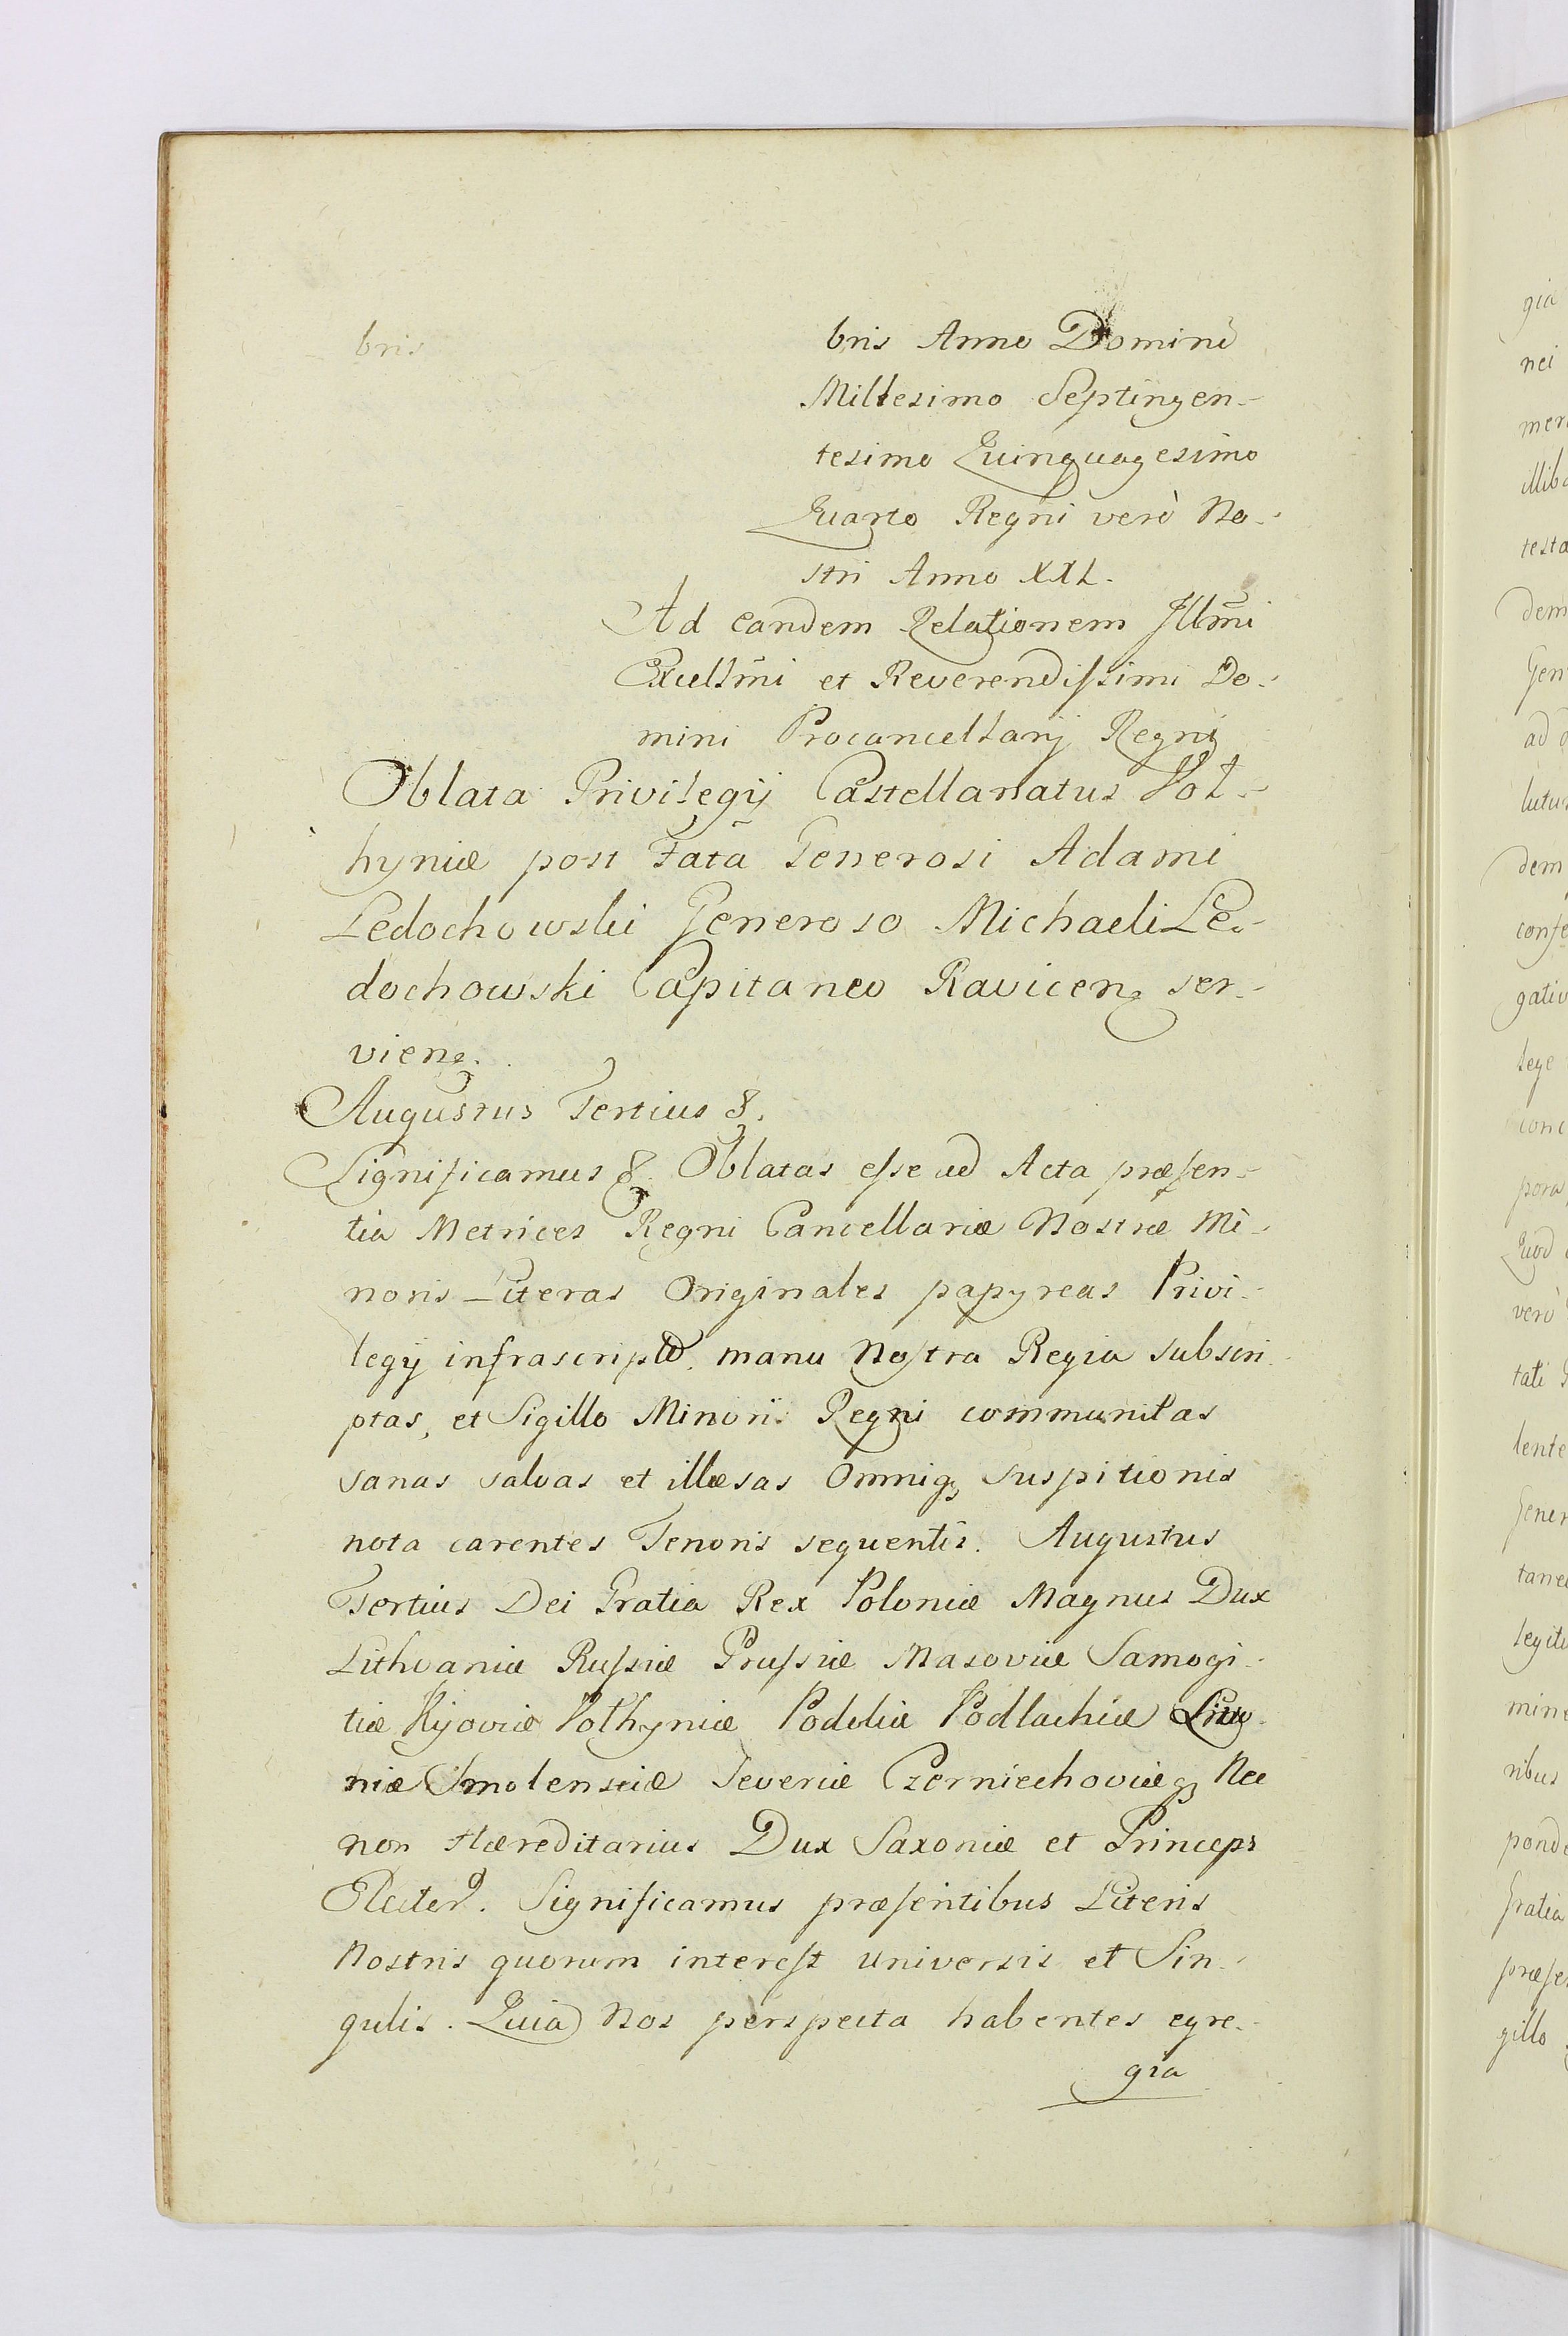 bris
bris Anno Domini
Millesimo Septingen-
tesimo Quinquagesimo
Quarto Regni verò No-
stri Anno XXI.
Ad eandem Relationem Illm̃i
Excellm̃i et Reverendissimi Do-
mini Procancellarij Regni
Oblata Privilegij Castellanatus Vol-
hyniæ post Fata Generosi Adami
Ledochowski Generoso Michaeli Le-
dochowski Capitaneo Ravicen. ser-
vien.
Augustus Tertius &.
Significamus &. Oblatas esse ad Acta præsen-
tia Metrices Regni Cancellariæ Nostræ Mi-
noris Literas Originales papyreas Privi-
legij infrascripti, manu Nostra Regia subscri-
ptas, et Sigillo Minoris Regni communitas
sanas salvas et illæsas Omniq; suspitionis
nota carentes Tenoris sequentis. Augustus
Tertius Dei Gratia Rex Poloniæ Magnus Dux
Lithvaniæ Russiæ Prussiæ Masoviæ Samogi-
tiæ Kijoviæ Volhyniæ Podoliæ Podlachiæ Livo-
niæ Smolensciæ Severiæ Czerniechoviæq; Nec
non Hæreditarius Dux Saxoniæ et Princeps
Elector. Significamus præsentibus Literis
Nostris quorum interest universis et Sin-
gulis. Quia Nos perspecta habentes egre-
gia
gia
nei
illib
testa
dem
Gen
ad
lutu
dem
conf
gativ
lege
conc
pora
Quod
verò
tati
lente
Gener
tane
legit
mine
ribus
pond
Gratia
præse
gillo